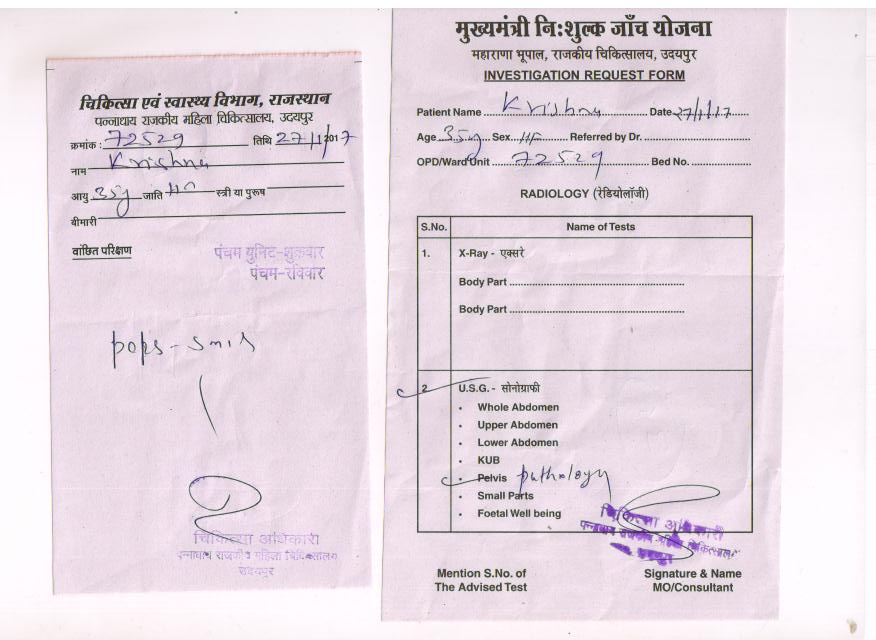 चिकित्सा एवं स्वास्थ्य विभाग, राजस्थान
पन्नाधाय राजकीय महिला चिकित्सालय, उदयपुर
क्रमांक : 72529 तिथि 27/1/2017
नाम Krishna
आयु 35y जाति स्त्री या पुरूष
बीमारी
वांछित परिक्षण
पंचम युनिट-शुक्रवार
पंचम-रविवार
pops - smis
चिकित्सा अधिकारी
पन्नाधाय राजकीय महिला चिकित्सालय
उदयपुर
मुख्यमंत्री नि:शुल्क जाँच योजना
महाराणा भूपाल, राजकीय चिकित्सालय, उदयपुर
INVESTIGATION REQUEST FORM
Patient Name Krishna Date 27/1/17
Age 35y Sex Referred by Dr.
OPD/Ward Unit 72529 Bed No.
RADIOLOGY (रेडियोलॉजी)
S.No. Name of Tests
1. X-Ray - एक्सरे
Body Part
Body Part
2 U.S.G. - सोनोग्राफी
• Whole Abdomen
• Upper Abdomen
• Lower Abdomen
• KUB
• Pelvis pathology
• Small Parts
• Foetal Well being
चिकित्सा अधिकारी
पन्नाधाय राजकीय महिला चिकित्सालय
उदयपुर
Mention S.No. of
The Advised Test
Signature & Name
MO/Consultant